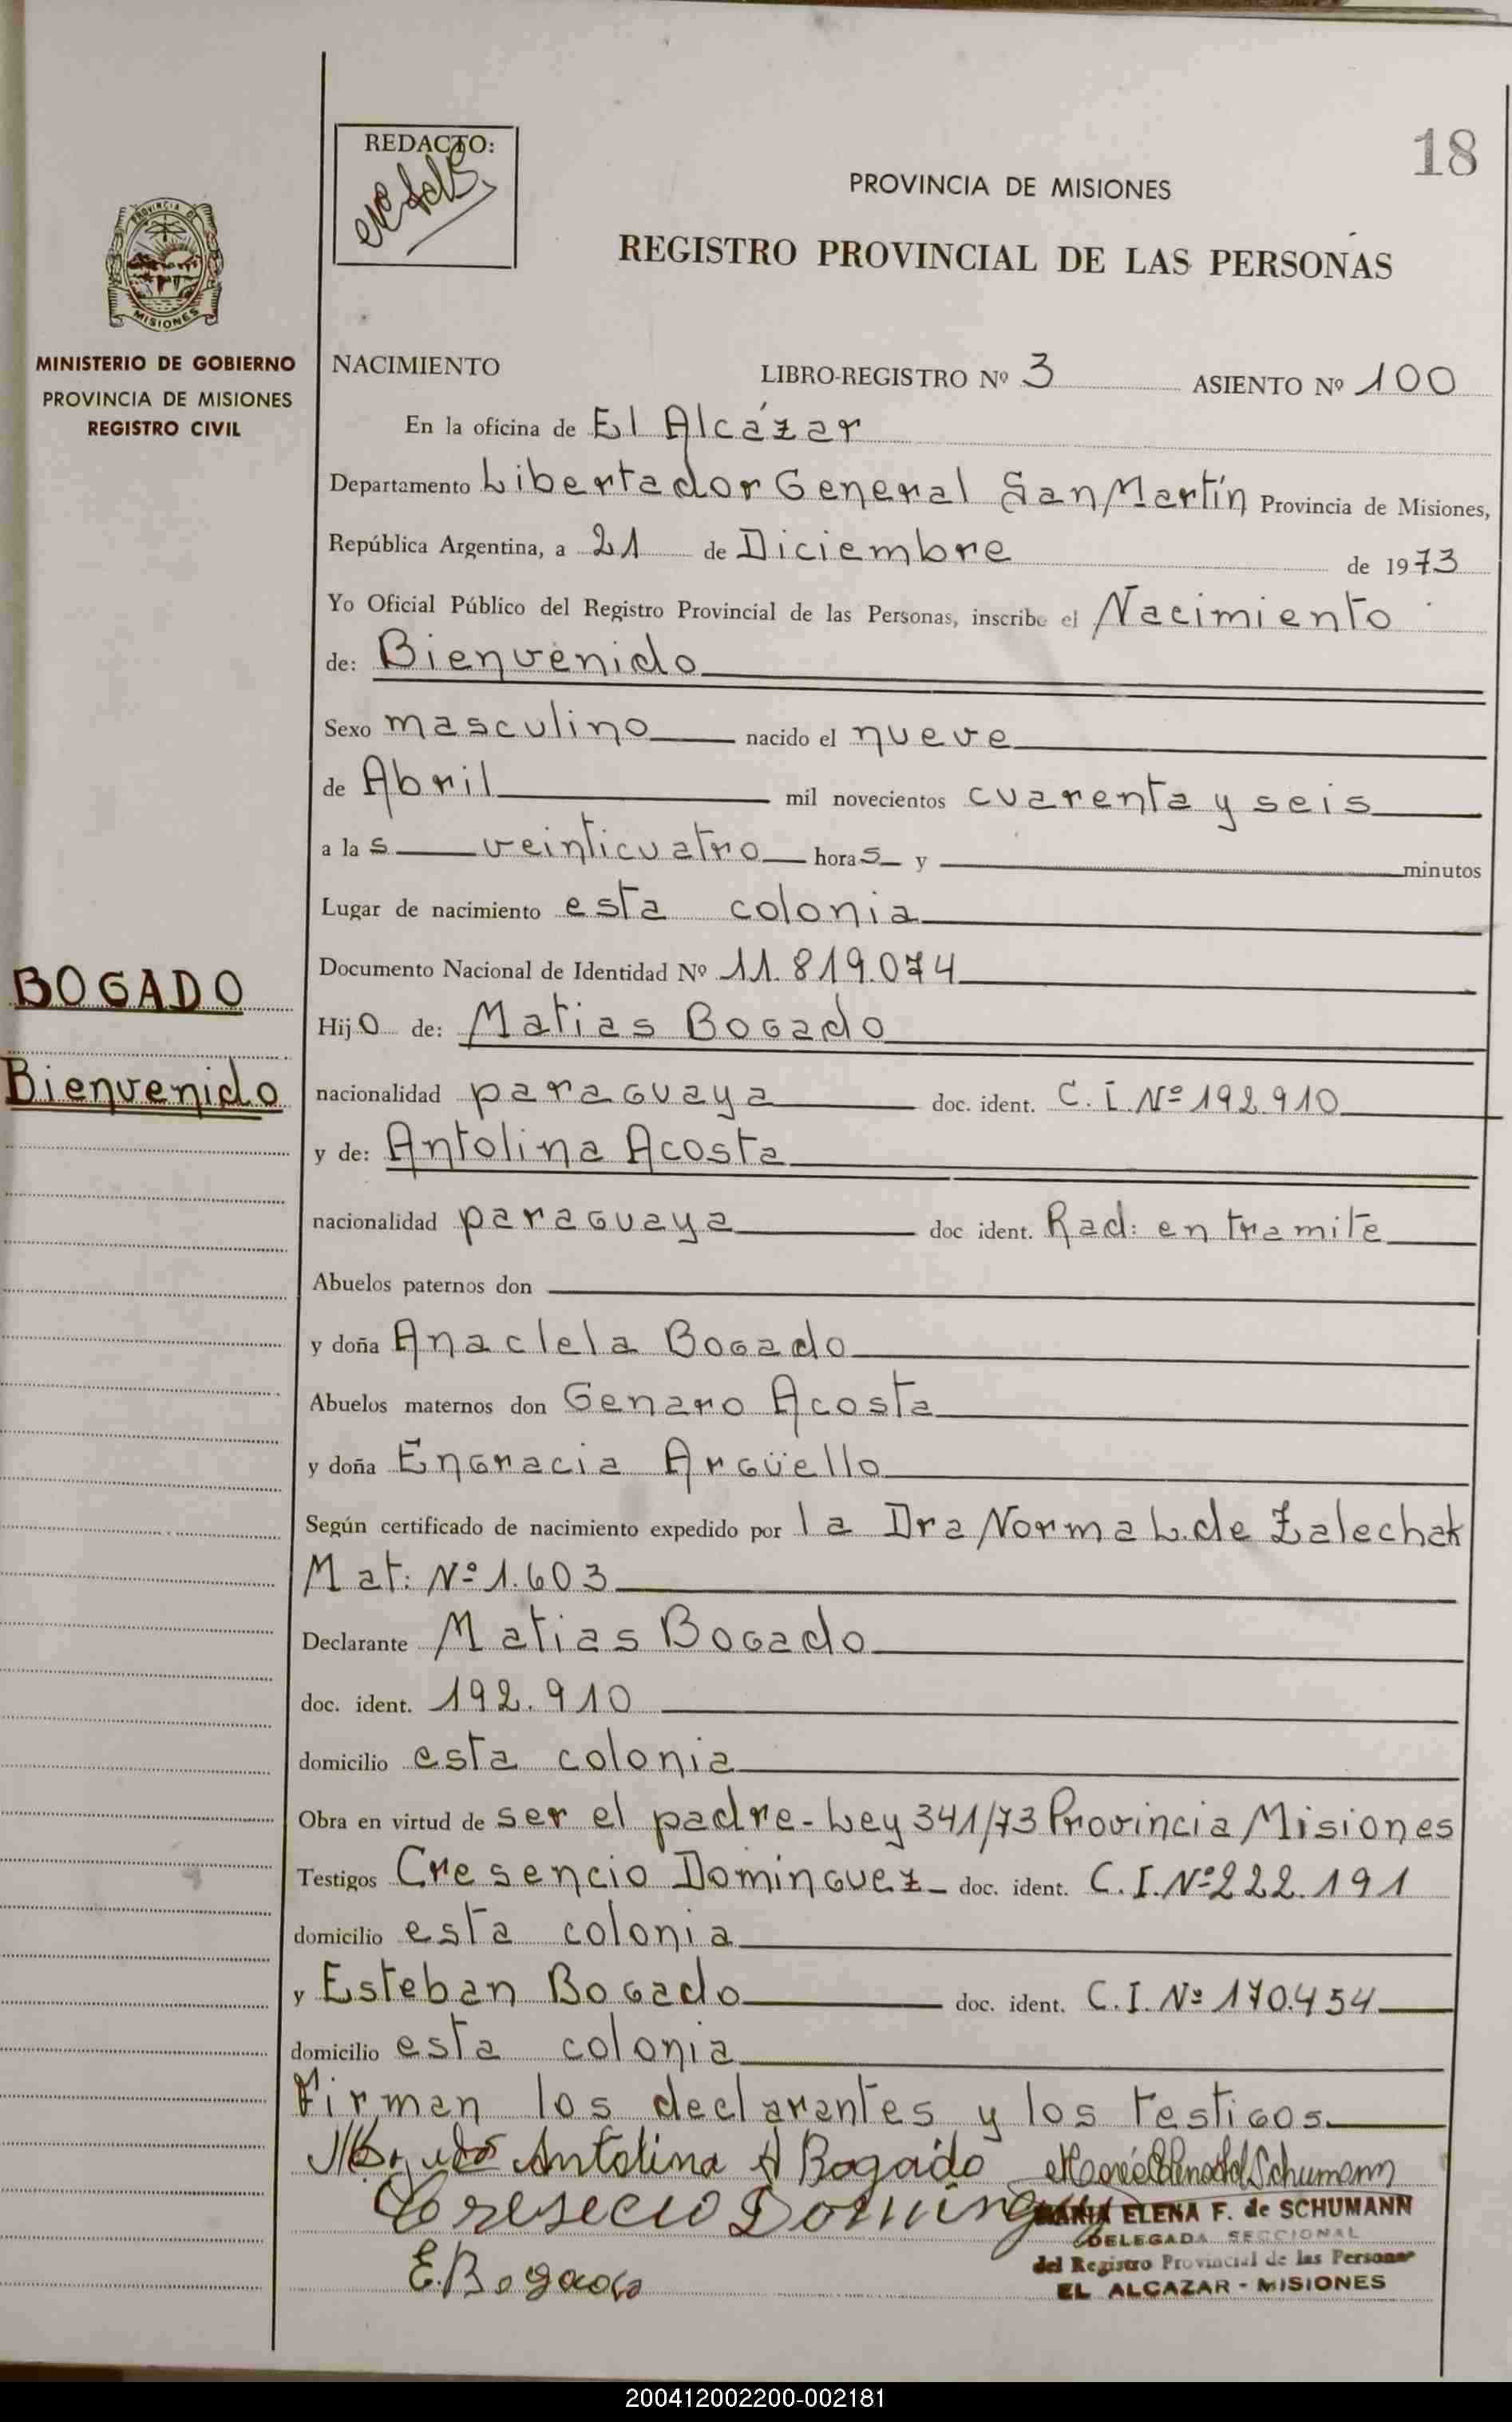 18
REDACTO:
PROVINCIA DE MISIONES
REGISTRO PROVINCIAL DE LAS PERSONAS
PROVINCIA DE
MISIONES
MINISTERIO DE GOBIERNO
PROVINCIA DE MISIONES
REGISTRO CIVIL
NACIMIENTO LIBRO-REGISTRO Nº 3 ASIENTO Nº 100
En la oficina de El Alcázar
Departamento Libertador General San Martín Provincia de Misiones,
República Argentina, a 21 de Diciembre de 1973
Yo Oficial Público del Registro Provincial de las Personas, inscribo el Nacimiento
de: Bienvenido
Sexo masculino nacido el nueve
de Abril mil novecientos cuarenta y seis
a las veinticuatro horas y minutos
Lugar de nacimiento esta colonia
Documento Nacional de Identidad Nº 11.819.074
BOGADO
Hijo de: Matias Bogado
Bienvenido
nacionalidad paraguaya doc. ident. C.I. Nº 192.910
y de: Antolina Acosta
nacionalidad paraguaya doc ident. Rad: en tramite
Abuelos paternos don
y doña Anaclela Bogado
Abuelos maternos don Genaro Acosta
y doña Engracia Argüello
Según certificado de nacimiento expedido por la Dra Norma L. de Zalechak
Mat: Nº 1.603
Declarante Matias Bogado
doc. ident. 192.910
domicilio esta colonia
Obra en virtud de ser el padre- Ley 341/73 Provincia Misiones
Testigos Cresencio Dominguez- doc. ident. C.I. Nº 222.191
domicilio esta colonia
y Esteban Bogado doc. ident. C.I. Nº 170.454
domicilio esta colonia
Firman los declarantes y los testigos
Antolina A Bogado
Cresecio Doming
MARIA ELENA F. de SCHUMANN
DELEGADA SECCIONAL
del Registro Provincial de las Personas
EL ALCAZAR - MISIONES
E. Bogado
200412002200-002181